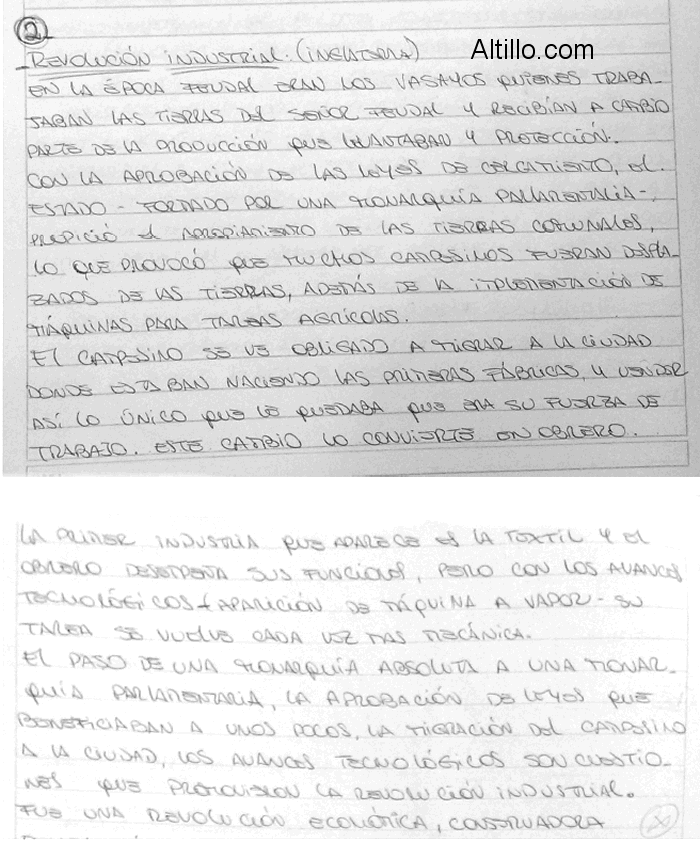 2
Altillo.com
REVOLUCIÓN INDUSTRIAL. (INGLATERRA)
EN LA ÉPOCA FEUDAL ERAN LOS VASAYOS QUIENES TRABA-
JABAN LAS TIERRAS DEL SEÑOR FEUDAL Y RECIBÍAN A CAMBIO
PARTE DE LA PRODUCCIÓN QUE LEVANTABAN Y PROTECCIÓN.
CON LA APROBACIÓN DE LAS LEYES DE CERCAMIENTO, EL
ESTADO - FORMADO POR UNA MONARQUÍA PARLAMENTARIA -,
PROPICIÓ EL APROPIAMIENTO DE LAS TIERRAS COMUNALES,
LO QUE PROVOCÓ QUE MUCHOS CAMPESINOS FUERAN DESPLA-
ZADOS DE LAS TIERRAS, ADEMÁS DE LA IMPLEMENTACIÓN DE
MÁQUINAS PARA TAREAS AGRÍCOLAS.
EL CAMPESINO SE VE OBLIGADO A MIGRAR A LA CIUDAD
DONDE ESTABAN NACIENDO LAS PRIMERAS FÁBRICAS, Y VENDER
ASÍ LO ÚNICO QUE LE QUEDABA QUE ERA SU FUERZA DE
TRABAJO. ESTE CAMBIO LO CONVIERTE EN OBRERO.
LA PRIMER INDUSTRIA QUE APARECE ES LA TEXTIL Y EL
OBRERO DESEMPEÑA SUS FUNCIONES, PERO CON LOS AVANCES
TECNOLÓGICOS - APARICIÓN DE MÁQUINA A VAPOR - SU
TAREA SE VUELVE CADA VEZ MAS MECÁNICA.
EL PASO DE UNA MONARQUÍA ABSOLUTA A UNA MONAR-
QUÍA PARLAMENTARIA, LA APROBACIÓN DE LEYES QUE
BENEFICIABAN A UNOS POCOS, LA MIGRACIÓN DEL CAMPESINO
A LA CIUDAD, LOS AVANCES TECNOLÓGICOS SON CUESTIO-
NES QUE PROMOVIERON LA REVOLUCIÓN INDUSTRIAL.
FUE UNA REVOLUCIÓN ECONÓMICA, CONSERVADORA